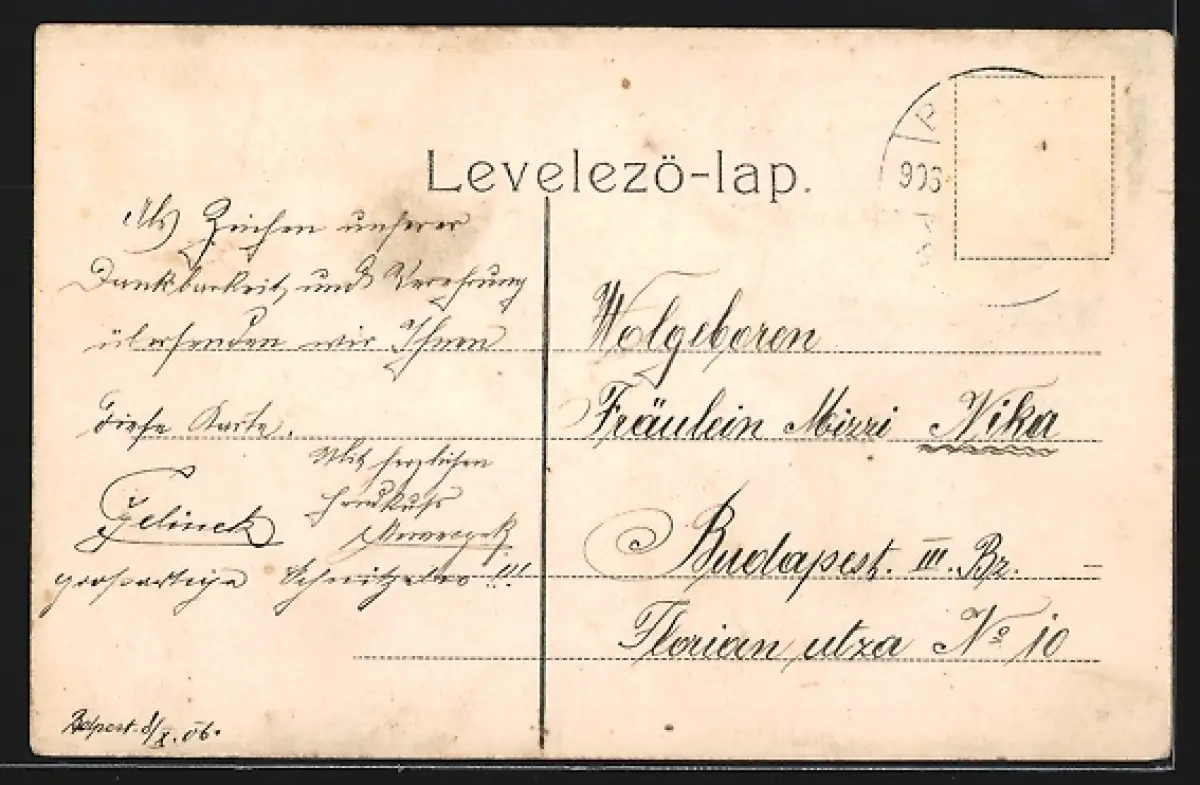 Levelezö-lap.
906
Als Zeichen unserer
Dankbarkeit und Verehrung
übersenden wir Ihnen
diese Karte.
Mit herzlichen
Gelinek
großartige Schnitzeln !!!
Bdpest. 8/X. 06.
Wolgeboren
Fräulein Mizzi Nika
Budapest. III. Bz.
Florian utza No 10